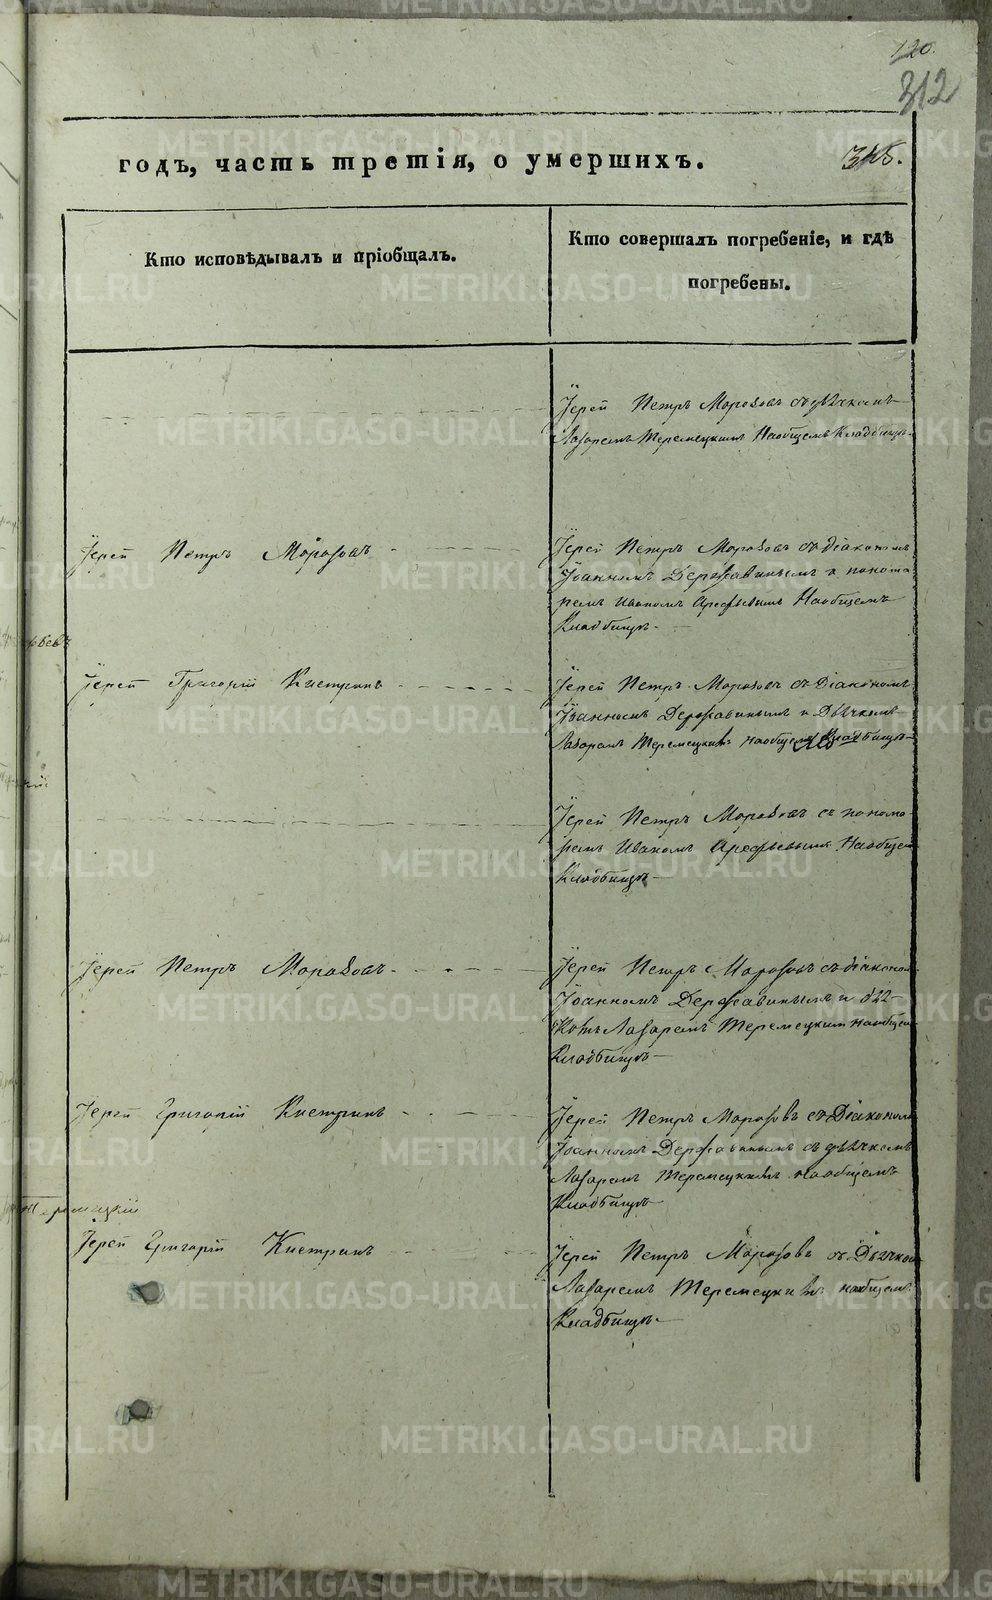 120.
312
годъ, часть третія, о умершихъ.
Кто исповѣдывалъ и пріобщалъ.
Кто совершалъ погребеніе, и гдѣ
погребены.
Іерей Петръ Морозовъ съ дьячкомъ
Лазаремъ Теремецкимъ На общемъ Кладбищѣ.
Іерей Петръ Морозовъ
Іерей Петръ Морозовъ съ діакономъ
Іоанномъ Державинымъ и понома
ремъ Иваномъ Арефьевымъ На общемъ
Кладбищѣ.
Іерей Григорій Кистринъ
Іерей Петръ Морозовъ съ Діакономъ
Іоанномъ Державинымъ и Дьячкомъ
Лазаремъ Теремецкимъ на общемъ Кладбищѣ
Іерей Петръ Морозовъ съ поно-
ремъ Иваномъ Арефьевымъ На общем
Кладбищѣ
Іерей Петръ Морозовъ
Іерей Петръ Морозовъ съ діаконом
Іоанномъ Державинымъ и дья-
комъ Лазаремъ Теремецким на общем
Кладбищѣ
Іерей Григорій Кистринъ
Іерей Петръ Морозовъ съ Діакономъ
Іоанномъ Державинымъ съ дьячкомъ
Лазаремъ Теремецкимъ на общемъ
Кладбищѣ
Іерей Григорій Кистринъ
Іерей Петръ Морозовъ съ Дьячком
Лазаремъ Теремецкимъ на общемъ
Кладбищѣ.
METRIKI.GASO-URAL.RU